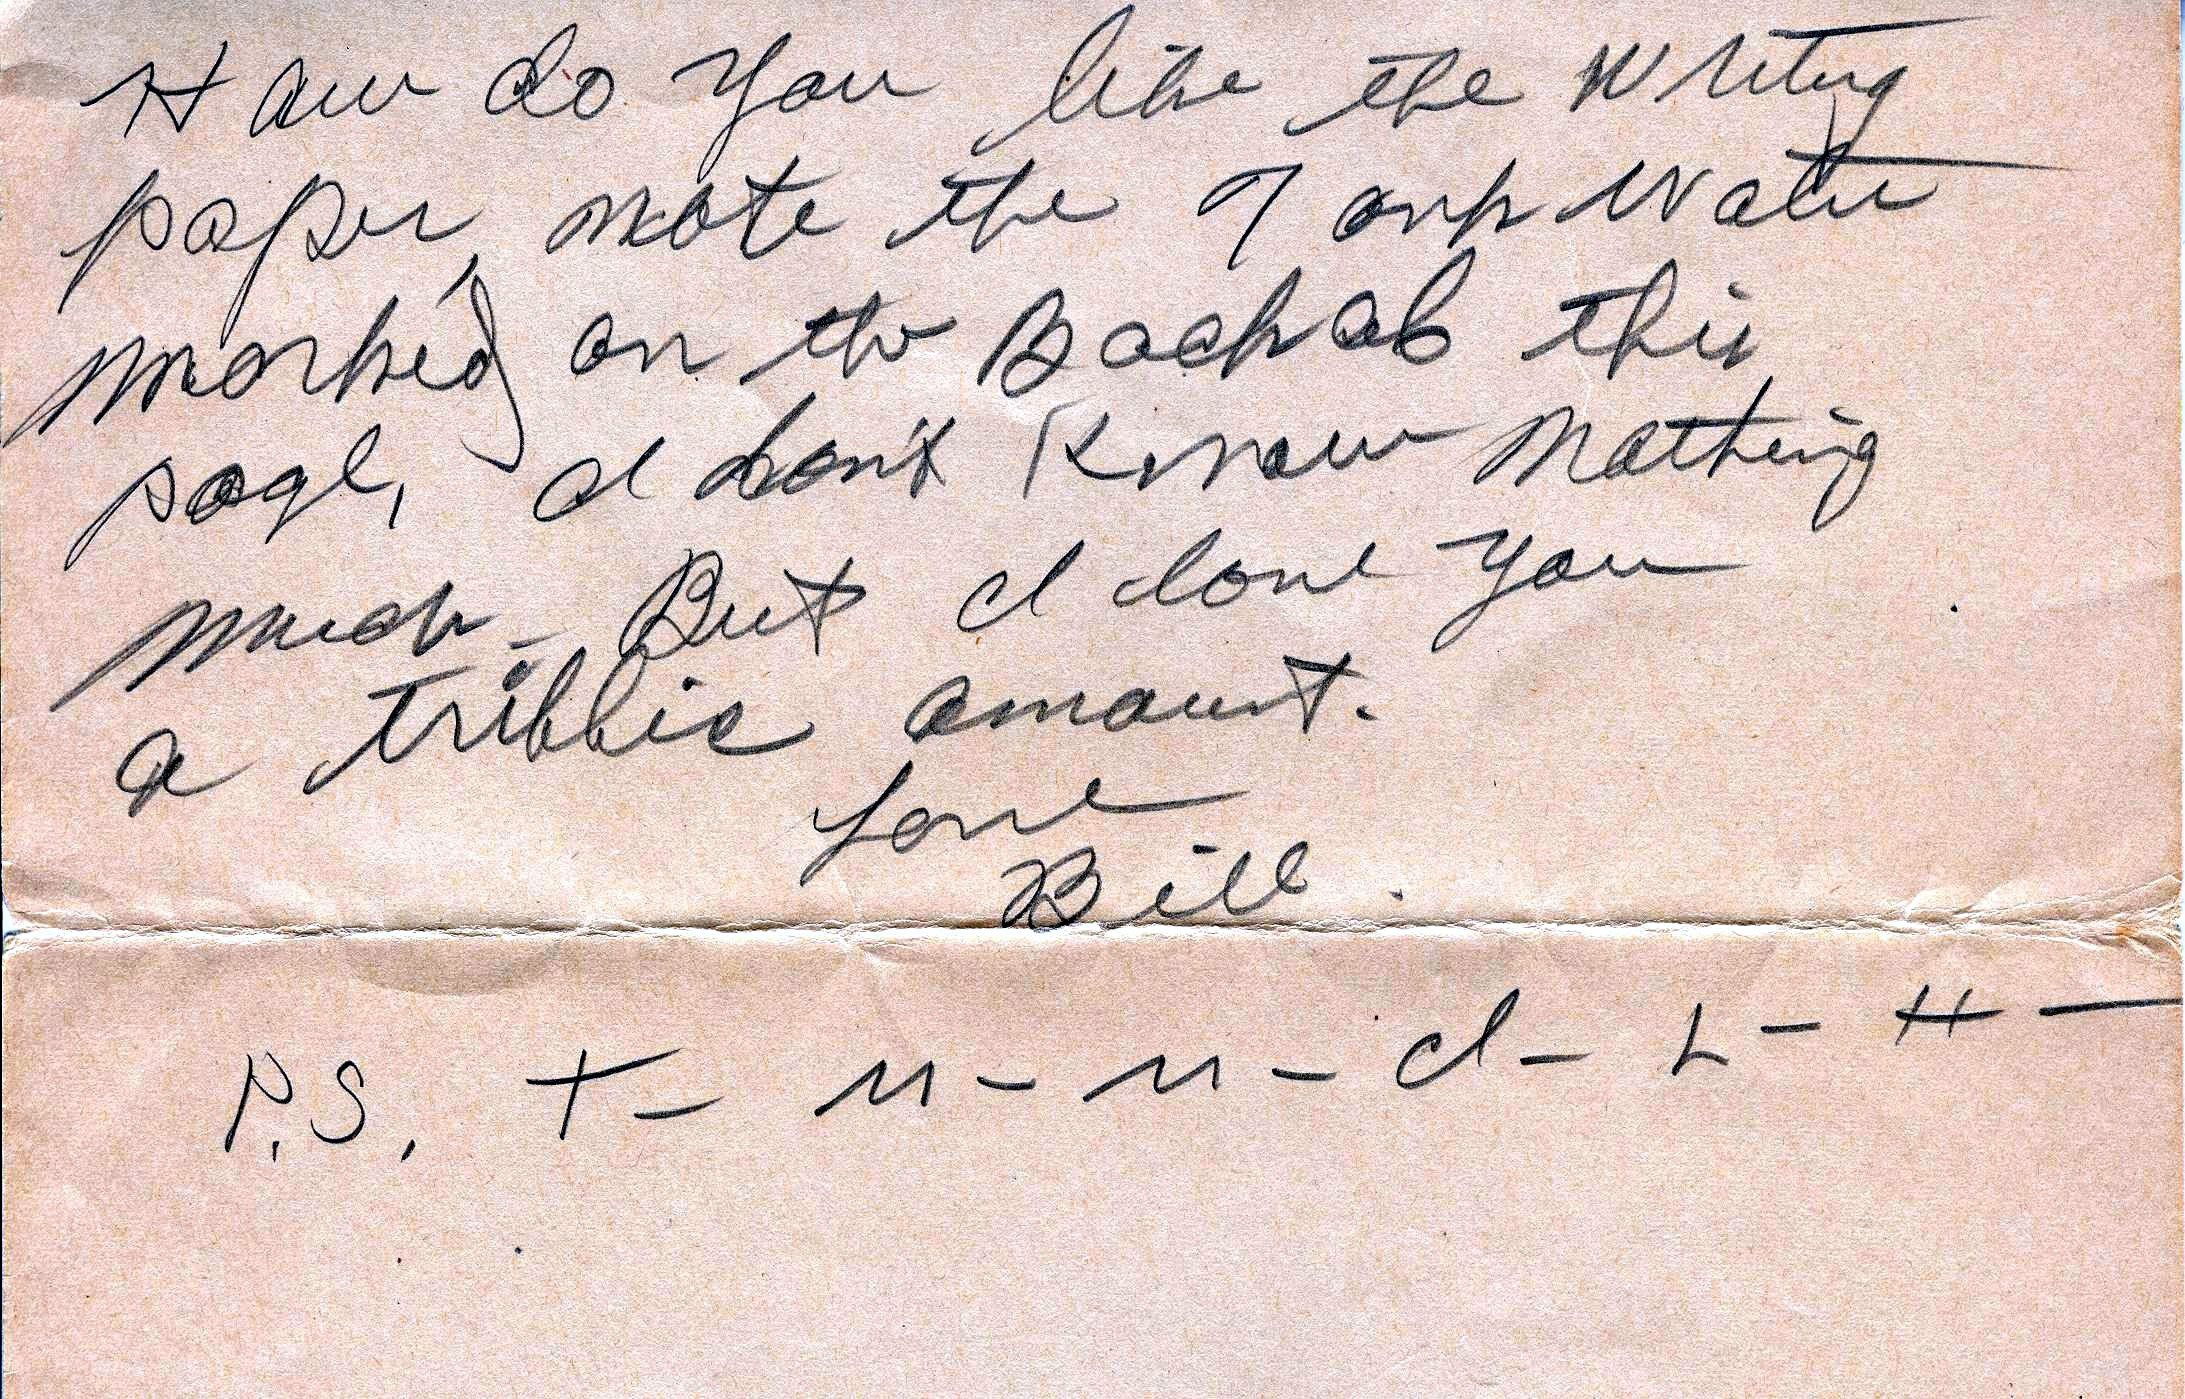 How do you like the writing
paper, note the Tank Water
marked on the Back ob this
page, I don't Know nothing
much - But I love you
a tribbic amount.
Love
Bill.
P.S. T - M - M - I - L - H -